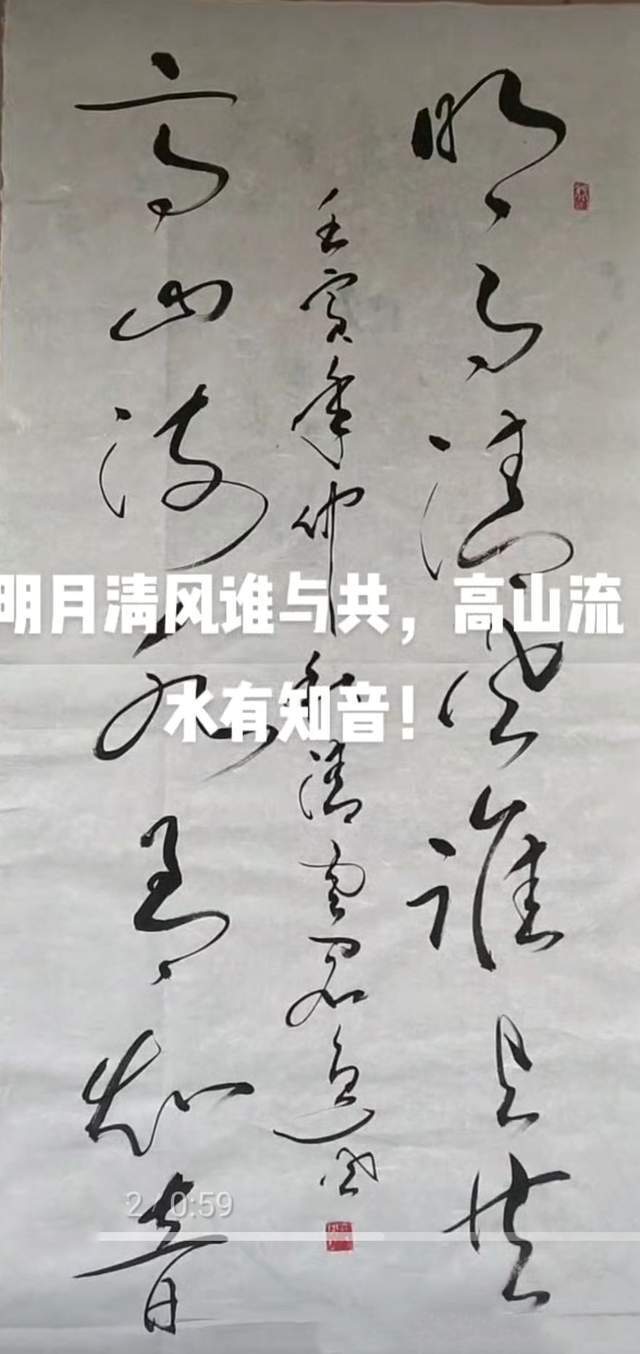 明月清风谁与共
壬寅年仲秋
高山流水有知音
明月清风谁与共，高山流
水有知音！
0:59